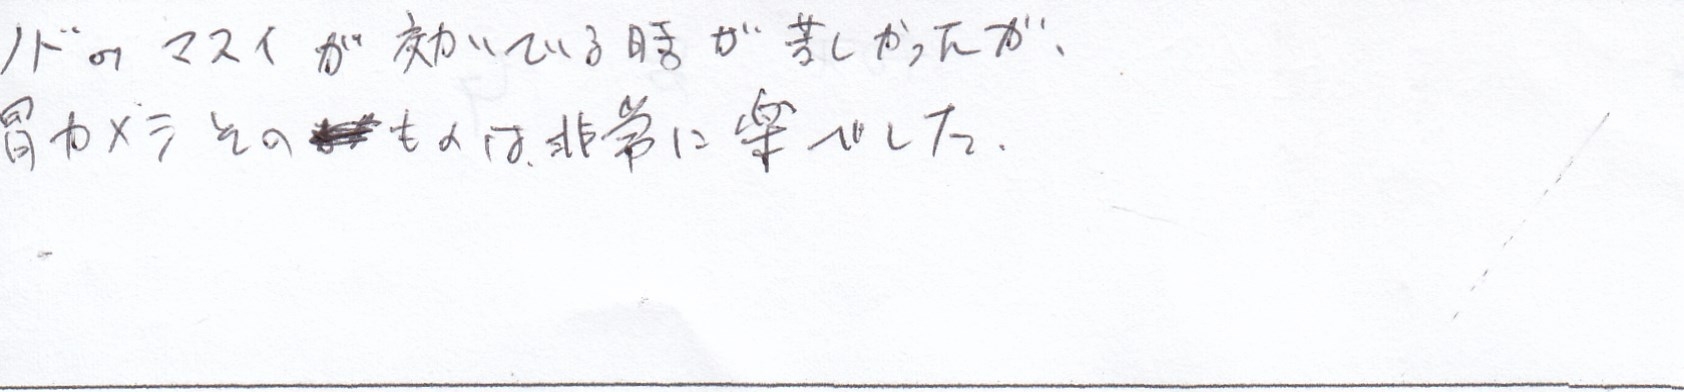 ノドのマスイが効いている時が苦しかったが、
胃カメラそのものは、非常に楽でした。